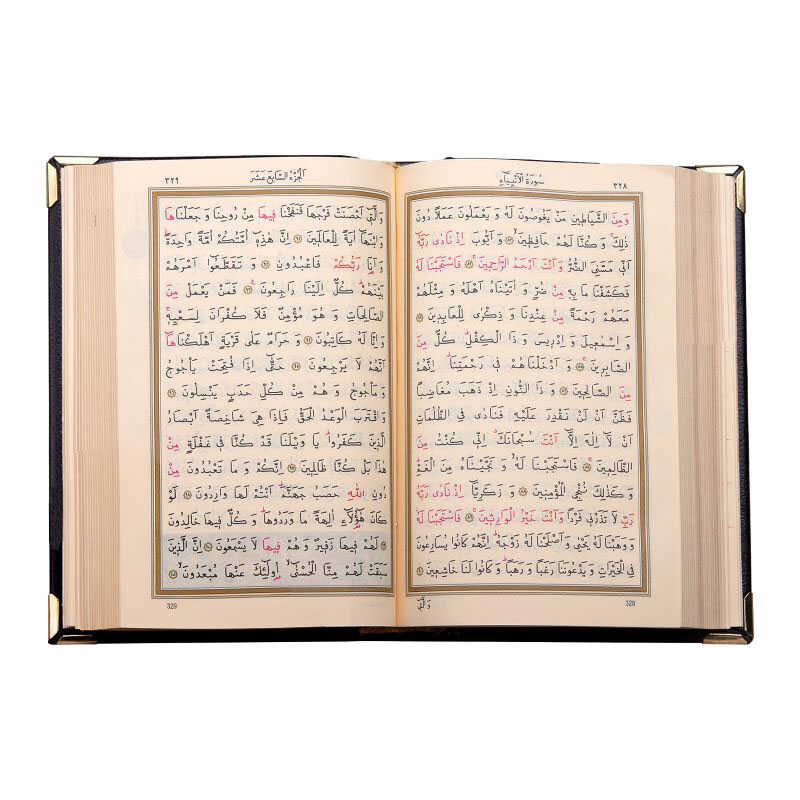 سُورَةُ الْاَنْبِيَاءِ
٣٢٨
وَمِنَ الشَّيَاطِينِ مَنْ يَغُوصُونَ لَهُ وَ يَعْمَلُونَ عَمَلًا دُونَ
ذٰلِكَۚ وَ كُنَّا لَهُمْ حَافِظِينَۙ ۝ وَ اَيُّوبَ اِذْ نَادٰى رَبَّهُٓ
اَنِّى مَسَّنِىَ الضُّرُّ وَ اَنْتَ اَرْحَمُ الرَّاحِمِينَۚ ۝ فَاسْتَجَبْنَا لَهُ
فَكَشَفْنَا مَا بِهِ مِنْ ضُرٍّ وَ اٰتَيْنَاهُ اَهْلَهُ وَ مِثْلَهُمْ
مَعَهُمْ رَحْمَةً مِنْ عِنْدِنَا وَ ذِكْرٰى لِلْعَابِدِينَ ۝
وَ اِسْمٰعِيلَ وَ اِدْرِيسَ وَ ذَا الْكِفْلِۜ كُلٌّ مِنَ
الصَّابِرِينَۚ ۝ وَ اَدْخَلْنَاهُمْ فِى رَحْمَتِنَاۜ اِنَّهُمْ
مِنَ الصَّالِحِينَ ۝ وَ ذَا النُّونِ اِذْ ذَهَبَ مُغَاضِبًا
فَظَنَّ اَنْ لَنْ نَقْدِرَ عَلَيْهِ فَنَادٰى فِى الظُّلُمَاتِ
اَنْ لَٓا اِلٰهَ اِلَّٓا اَنْتَ سُبْحَانَكَۗ اِنِّى كُنْتُ مِنَ
الظَّالِمِينَۚ ۝ فَاسْتَجَبْنَا لَهُۙ وَ نَجَّيْنَاهُ مِنَ الْغَمِّۜ
وَ كَذٰلِكَ نُنْجِى الْمُؤْمِنِينَ ۝ وَ زَكَرِيَّٓا اِذْ نَادٰى رَبَّهُ
رَبِّ لَا تَذَرْنِى فَرْدًا وَ اَنْتَ خَيْرُ الْوَارِثِينَۚ ۝ فَاسْتَجَبْنَا لَهُۘ
وَ وَهَبْنَا لَهُ يَحْيٰى وَ اَصْلَحْنَا لَهُ زَوْجَهُۜ اِنَّهُمْ كَانُوا يُسَارِعُونَ
فِى الْخَيْرَاتِ وَ يَدْعُونَنَا رَغَبًا وَ رَهَبًاۜ وَ كَانُوا لَنَا خَاشِعِينَ ۝
328
وَالَّتِٓى
اَلْجُزْءُ السَّابِعَ عَشَرَ
٣٢٩
وَ الَّتِٓى اَحْصَنَتْ فَرْجَهَا فَنَفَخْنَا فِيهَا مِنْ رُوحِنَا وَ جَعَلْنَاهَا
وَ ابْنَهَٓا اٰيَةً لِلْعَالَمِينَ ۝ اِنَّ هٰذِهِٓ اُمَّتُكُمْ اُمَّةً وَاحِدَةًۘ
وَ اَنَا۬ رَبُّكُمْ فَاعْبُدُونِ ۝ وَ تَقَطَّعُٓوا اَمْرَهُمْ
بَيْنَهُمْۜ كُلٌّ اِلَيْنَا رَاجِعُونَ۟ ۝ فَمَنْ يَعْمَلْ مِنَ
الصَّالِحَاتِ وَ هُوَ مُؤْمِنٌ فَلَا كُفْرَانَ لِسَعْيِهِۚ
وَ اِنَّا لَهُ كَاتِبُونَ ۝ وَ حَرَامٌ عَلٰى قَرْيَةٍ اَهْلَكْنَاهَٓا
اَنَّهُمْ لَا يَرْجِعُونَ ۝ حَتّٰٓى اِذَا فُتِحَتْ يَأْجُوجُ
وَ مَأْجُوجُ وَ هُمْ مِنْ كُلِّ حَدَبٍ يَنْسِلُونَ ۝
وَ اقْتَرَبَ الْوَعْدُ الْحَقُّ فَاِذَا هِىَ شَاخِصَةٌ اَبْصَارُ
الَّذِينَ كَفَرُواۜ يَا وَيْلَنَا قَدْ كُنَّا فِى غَفْلَةٍ مِنْ
هٰذَا بَلْ كُنَّا ظَالِمِينَ ۝ اِنَّكُمْ وَ مَا تَعْبُدُونَ مِنْ
دُونِ اللّٰهِ حَصَبُ جَهَنَّمَۜ اَنْتُمْ لَهَا وَارِدُونَ ۝ لَوْ
كَانَ هٰٓؤُ۬لَٓاءِ اٰلِهَةً مَا وَرَدُوهَاۜ وَ كُلٌّ فِيهَا خَالِدُونَ
۝ لَهُمْ فِيهَا زَفِيرٌ وَ هُمْ فِيهَا لَا يَسْمَعُونَ ۝ اِنَّ الَّذِينَ
سَبَقَتْ لَهُمْ مِنَّا الْحُسْنٰىۙ اُو۬لٰٓئِكَ عَنْهَا مُبْعَدُونَۙ ۝
329